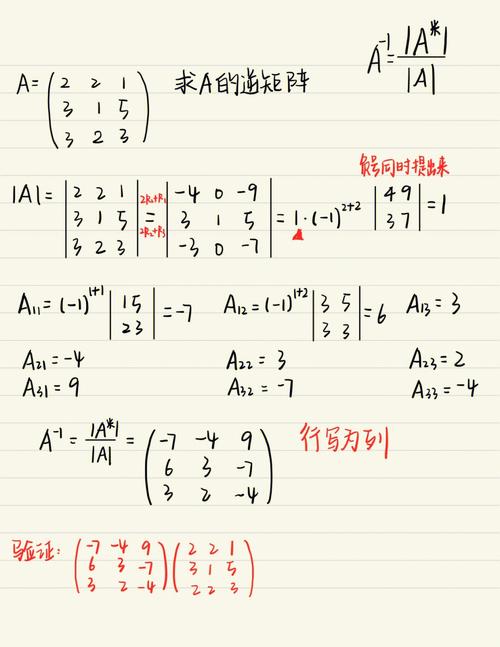 A⁻¹=|A*|/|A|
A=(2 2 1
3 1 5
3 2 3) 求A的逆矩阵
负号同时提出来
|A|=|2 2 1
3 1 5
3 2 3| = |-4 0 -9
3 1 5
-3 0 -7| =1·(-1)²⁺²|4 9
3 7|=1
A₁₁=(-1)¹⁺¹|1 5
2 3|=-7 A₁₂=(-1)¹⁺²|3 5
3 3|=6 A₁₃=3
A₂₁=-4 A₂₂=3 A₂₃=2
A₃₁=9 A₃₂=-7 A₃₃=-4
A⁻¹=|A*|/|A|=(-7 -4 9
6 3 -7
3 2 -4) 行写为列
验证:(-7 -4 9
6 3 -7
3 2 -4)(2 2 1
3 1 5
2 2 3)